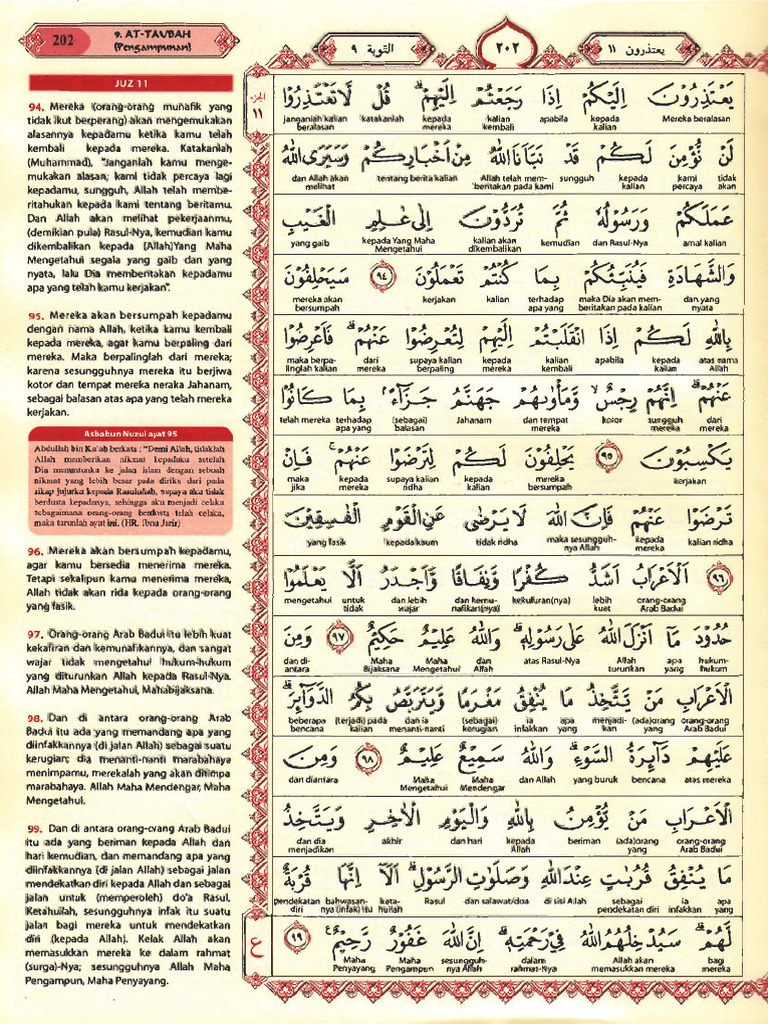 202
9. AT-TAUBAH
(Pengampunan)
التوبة ٩
٢٠٢
يعتذرون ١١
JUZ 11
94. Mereka (orang-orang munafik yang
tidak ikut berperang) akan mengemukakan
alasannya kepadamu ketika kamu telah
kembali kepada mereka. Katakanlah
(Muhammad), "Janganlah kamu menge-
mukakan alasan; kami tidak percaya lagi
kepadamu, sungguh, Allah telah membe-
ritahukan kepada kami tentang beritamu.
Dan Allah akan melihat pekerjaanmu,
(demikian pula) Rasul-Nya, kemudian kamu
dikembalikan kepada (Allah)Yang Maha
Mengetahui segala yang gaib dan yang
nyata, lalu Dia memberitakan kepadamu
apa yang telah kamu kerjakan".
95. Mereka akan bersumpah kepadamu
dengan nama Allah, ketika kamu kembali
kepada mereka, agar kamu berpaling dari
mereka. Maka berpalinglah dari mereka;
karena sesungguhnya mereka itu berjiwa
kotor dan tempat mereka neraka Jahanam,
sebagai balasan atas apa yang telah mereka
kerjakan.
Asbabun Nuzul ayat 95
Abdullah bin Ka'ab berkata : "Demi Allah, tidaklah
Allah memberikan nikmat kepadaku setelah
Dia menuntunku ke jalan islam dengan sebuah
nikmat yang lebih besar pada diriku dari pada
sikap jujurku kepada Rasulullah, supaya aku tidak
berdusta kepadanya, sehingga aku menjadi celaka
sebagaimana orang-orang berdusta telah celaka,
maka turunlah ayat ini. (HR. Ibnu Jarir)
96. Mereka akan bersumpah kepadamu,
agar kamu bersedia menerima mereka.
Tetapi sekalipun kamu menerima mereka,
Allah tidak akan rida kepada orang-orang
yang fasik.
97. Orang-orang Arab Badui itu lebih kuat
kekafiran dan kemunafikannya, dan sangat
wajar tidak mengetahui hukum-hukum
yang diturunkan Allah kepada Rasul-Nya.
Allah Maha Mengetahui, Mahabijaksana.
98. Dan di antara orang-orang Arab
Badui itu ada yang memandang apa yang
diinfakkannya (di jalan Allah) sebagai suatu
kerugian; dia menanti-nanti marabahaya
menimpamu, merekalah yang akan ditimpa
marabahaya. Allah Maha Mendengar, Maha
Mengetahui.
99. Dan di antara orang-orang Arab Badui
itu ada yang beriman kepada Allah dan
hari kemudian, dan memandang apa yang
diinfakkannya (di jalan Allah) sebagai jalan
mendekatkan diri kepada Allah dan sebagai
jalan untuk (memperoleh) do'a Rasul.
Ketahuilah, sesungguhnya infak itu suatu
jalan bagi mereka untuk mendekatkan
diri (kepada Allah). Kelak Allah akan
memasukkan mereka ke dalam rahmat
(surga)-Nya; sesungguhnya Allah Maha
Pengampun, Maha Penyayang.
الجزء
١١
يَعْتَذِرُوْنَ اِلَيْكُمْ اِذَا رَجَعْتُمْ اِلَيْهِمْۗ قُلْ لَّا تَعْتَذِرُوْا
Mereka beralasan kepada kalian apabila kalian kembali kepada mereka katakanlah janganlah kalian beralasan
لَنْ نُّؤْمِنَ لَكُمْ قَدْ نَبَّاَنَا اللّٰهُ مِنْ اَخْبَارِكُمْ وَسَيَرَى اللّٰهُ
tidak akan kami percaya kepada kalian sungguh Allah telah mem-beritakan pada kami tentang berita kalian dan Allah akan melihat
عَمَلَكُمْ وَرَسُوْلُهٗ ثُمَّ تُرَدُّوْنَ اِلٰى عٰلِمِ الْغَيْبِ
amal kalian dan Rasul-Nya kemudian kalian akan dikembalikan kepada Yang Maha Mengetahui yang gaib
وَالشَّهَادَةِ فَيُنَبِّئُكُمْ بِمَا كُنْتُمْ تَعْمَلُوْنَ ٩٤ سَيَحْلِفُوْنَ
dan yang nyata maka Dia akan mem-beritakan pada kalian terhadap apa yang kalian kerjakan mereka akan bersumpah
بِاللّٰهِ لَكُمْ اِذَا انْقَلَبْتُمْ اِلَيْهِمْ لِتُعْرِضُوْا عَنْهُمْۗ فَاَعْرِضُوْا
atas nama Allah kepada kalian apabila kalian kembali kepada mereka supaya kalian berpaling dari mereka maka berpa-linglah kalian
عَنْهُمْۗ اِنَّهُمْ رِجْسٌۙ وَّمَأْوٰىهُمْ جَهَنَّمُ جَزَاۤءًۢ بِمَا كَانُوْا
dari mereka sungguh mereka kotor dan tempat mereka Jahanam (sebagai) balasan terhadap apa yang telah mereka
يَكْسِبُوْنَ ٩٥ يَحْلِفُوْنَ لَكُمْ لِتَرْضَوْا عَنْهُمْۚ فَاِنْ
kerjakan mereka bersumpah kepada kalian supaya kalian ridha kepada mereka maka jika
تَرْضَوْا عَنْهُمْ فَاِنَّ اللّٰهَ لَا يَرْضٰى عَنِ الْقَوْمِ الْفٰسِقِيْنَ
kalian ridha kepada mereka maka sesungguh-nya Allah tidak ridha kepada kaum yang fasik
٩٦ اَلْاَعْرَابُ اَشَدُّ كُفْرًا وَّنِفَاقًا وَّاَجْدَرُ اَلَّا يَعْلَمُوْا
orang-orang Arab Badui lebih kuat kekufuran(nya) dan kemu-nafikan(nya) dan lebih wajar untuk tidak mengetahui
حُدُوْدَ مَآ اَنْزَلَ اللّٰهُ عَلٰى رَسُوْلِهٖۗ وَاللّٰهُ عَلِيْمٌ حَكِيْمٌ ٩٧ وَمِنَ
hukum-hukum apa yang Allah turunkan atas Rasul-Nya dan Allah Maha Mengetahui Maha Bijaksana dan di-antara
الْاَعْرَابِ مَنْ يَّتَّخِذُ مَا يُنْفِقُ مَغْرَمًا وَّيَتَرَبَّصُ بِكُمُ الدَّوَاۤىِٕرَۗ
orang-orang Arab Badui (ada)orang yang menjadi-kan apa yang ia infakkan (sebagai) kerugian dan ia menanti-nanti (terjadi) pada kalian beberapa bencana
عَلَيْهِمْ دَاۤىِٕرَةُ السَّوْءِۗ وَاللّٰهُ سَمِيْعٌ عَلِيْمٌ ٩٨ وَمِنَ
atas mereka bencana yang buruk dan Allah Maha Mendengar Maha Mengetahui dan diantara
الْاَعْرَابِ مَنْ يُّؤْمِنُ بِاللّٰهِ وَالْيَوْمِ الْاٰخِرِ وَيَتَّخِذُ
orang-orang Arab Badui (ada)orang yang beriman kepada Allah dan hari akhir dan dia menjadikan
مَا يُنْفِقُ قُرُبٰتٍ عِنْدَ اللّٰهِ وَصَلَوٰتِ الرَّسُوْلِۗ اَلَآ اِنَّهَا قُرْبَةٌ
apa yang ia infakkan sebagai pendekatan diri di sisi Allah dan salawat/doa Rasul keta-huilah bahwasan-nya (infak) itu pendekatan diri
لَّهُمْۗ سَيُدْخِلُهُمُ اللّٰهُ فِيْ رَحْمَتِهٖۗ اِنَّ اللّٰهَ غَفُوْرٌ رَّحِيْمٌ ٩٩
bagi mereka Allah akan memasukkan mereka dalam rahmat-Nya sesungguh-nya Allah Maha Pengampun Maha Penyayang
ع